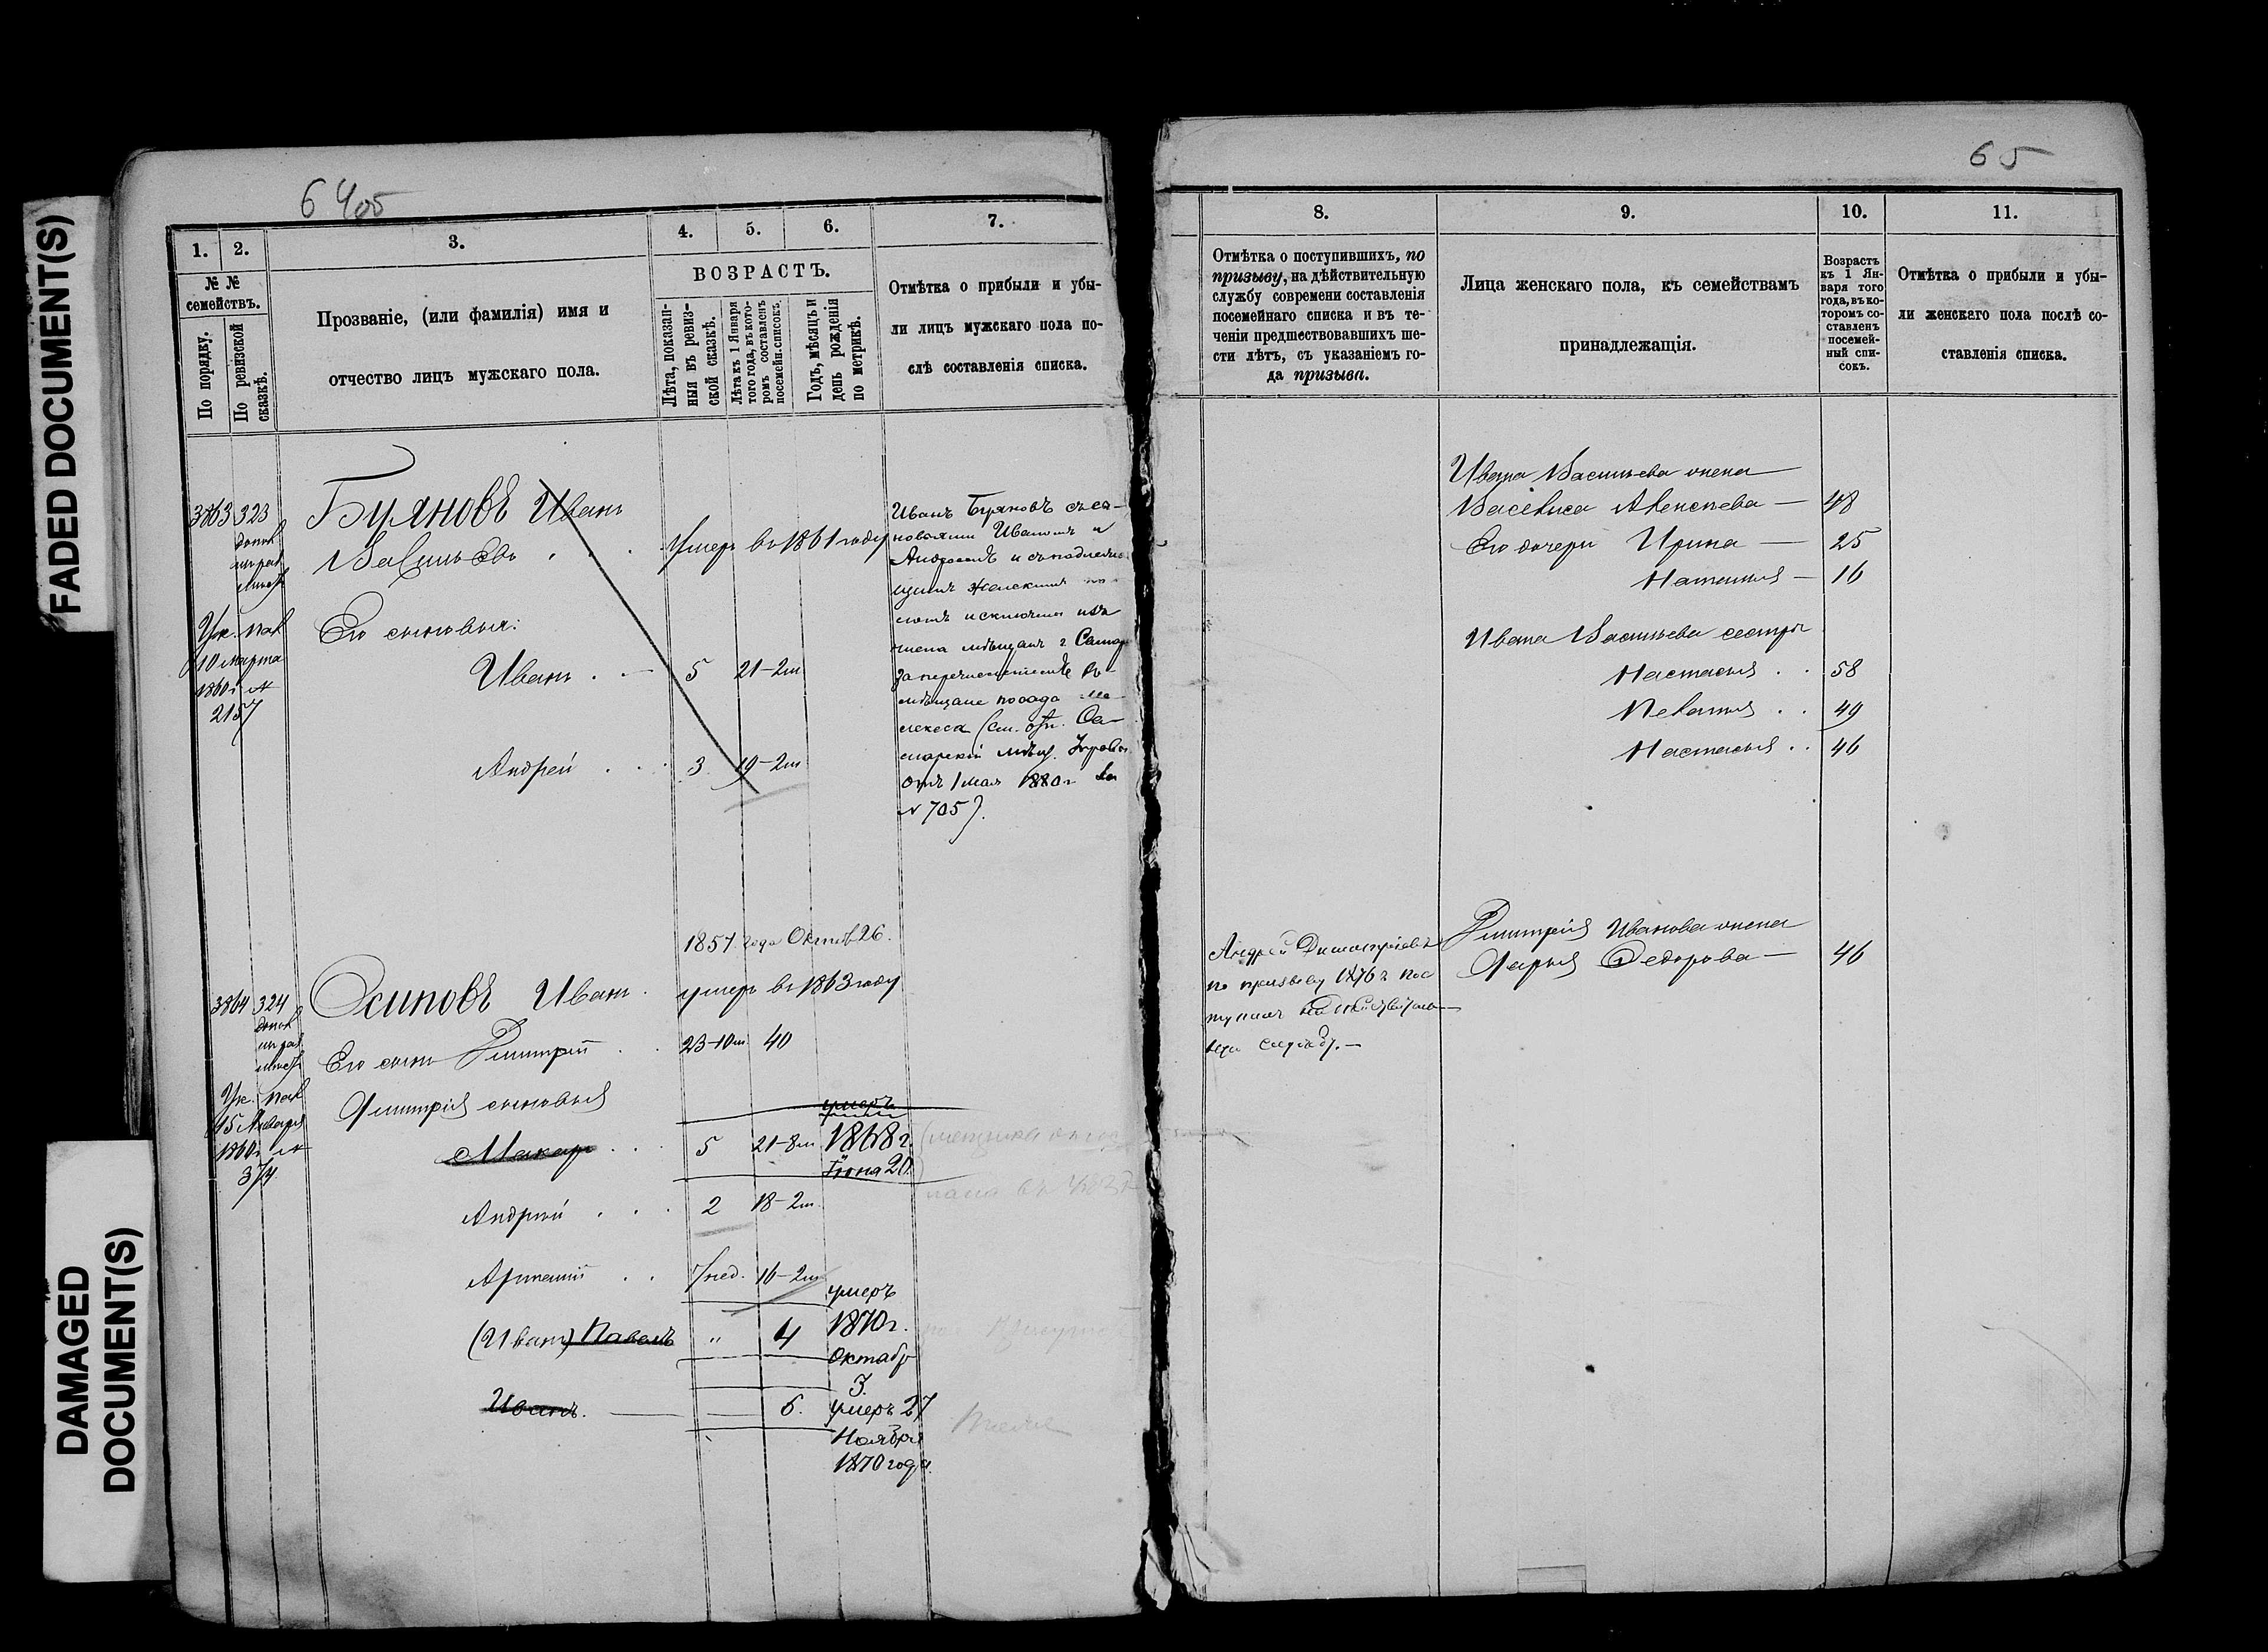 FAADED DOCUMENT(S)
DAMAGED
DOCUMENT(S)
64 65
1. 2. 3. 4. 5. 6. 7.
№ №
семействъ.
По порядку.
По ревизской
сказкѣ.
Прозваніе, (или фамилія) имя и
отчество лицъ мужскаго пола.
ВОЗРАСТЪ.
Лѣта, показан-
ныя въ ревиз-
ской сказкѣ.
Лѣта къ 1 Января
того года, въ кото-
ромъ составленъ
посемейн. списокъ.
Годъ, мѣсяцъ и
день рожденія
по метрикѣ.
Отмѣтка о прибыли и убы-
ли лицъ мужскаго пола по-
слѣ составленія списка.
3863 323
Буяновъ Иванъ
Васильевъ
Умеръ въ 1861 году
Ук. Пал
10 марта
1860 г. №
2157
Его сыновья:
Иванъ 5 21-2м
Андрей 3 19-2м
Иванъ Буяновъ съ сы-
новьями Иваномъ и
Андреемъ
исключены изъ
мѣщанъ г. Самар
за перечисленіемъ въ
мѣщане посада Ме-
лекеса (см. отн. Са-
марской мѣщ. Управы
отъ 1 мая 1880 г. за
№ 705).
1857 года Октяб 26.
3864 324
Осиповъ Иванъ
умеръ въ 1863 году
Его сынъ Дмитрій 23-10м 40
Ук. Пал
15 Января
1860 г. №
374
Дмитрія сыновья
Макаръ 5 21-8м
умеръ
1868 г.
Іюня 20.
Андрей 2 18-2м
Артемій 7 нед. 16-2м
(Иванъ) Павелъ " 4
умеръ
1870 г.
Октябр
3.
Иванъ. 6.
умеръ 27
Ноября
1870 года.
65
8. 9. 10. 11.
Отмѣтка о поступившихъ, по
призыву, на дѣйствительную
службу современи составленія
посемейнаго списка и въ те-
ченіи предшествовавшихъ ше-
сти лѣтъ, съ указаніемъ го-
да призыва.
Лица женскаго пола, къ семействамъ
принадлежащія.
Возрастъ
къ 1 Ян-
варя того
года, въ ко-
торомъ со-
ставленъ
посемей-
ный спи-
сокъ.
Отмѣтка о прибыли и убы-
ли женскаго пола послѣ со-
ставленія списка.
Ивана Васильева жена
Василиса Алексѣева 48
Его дочери Ирина 25
Наталья 16
Ивана Васильева сестры
Настасья 58
49
Настасья 46
Андрей Дмитріевъ
по призыву 1876 г. пос
тупилъ на дѣйствитель
ную службу.
Дмитрія Иванова жена
Дарья Федорова 46